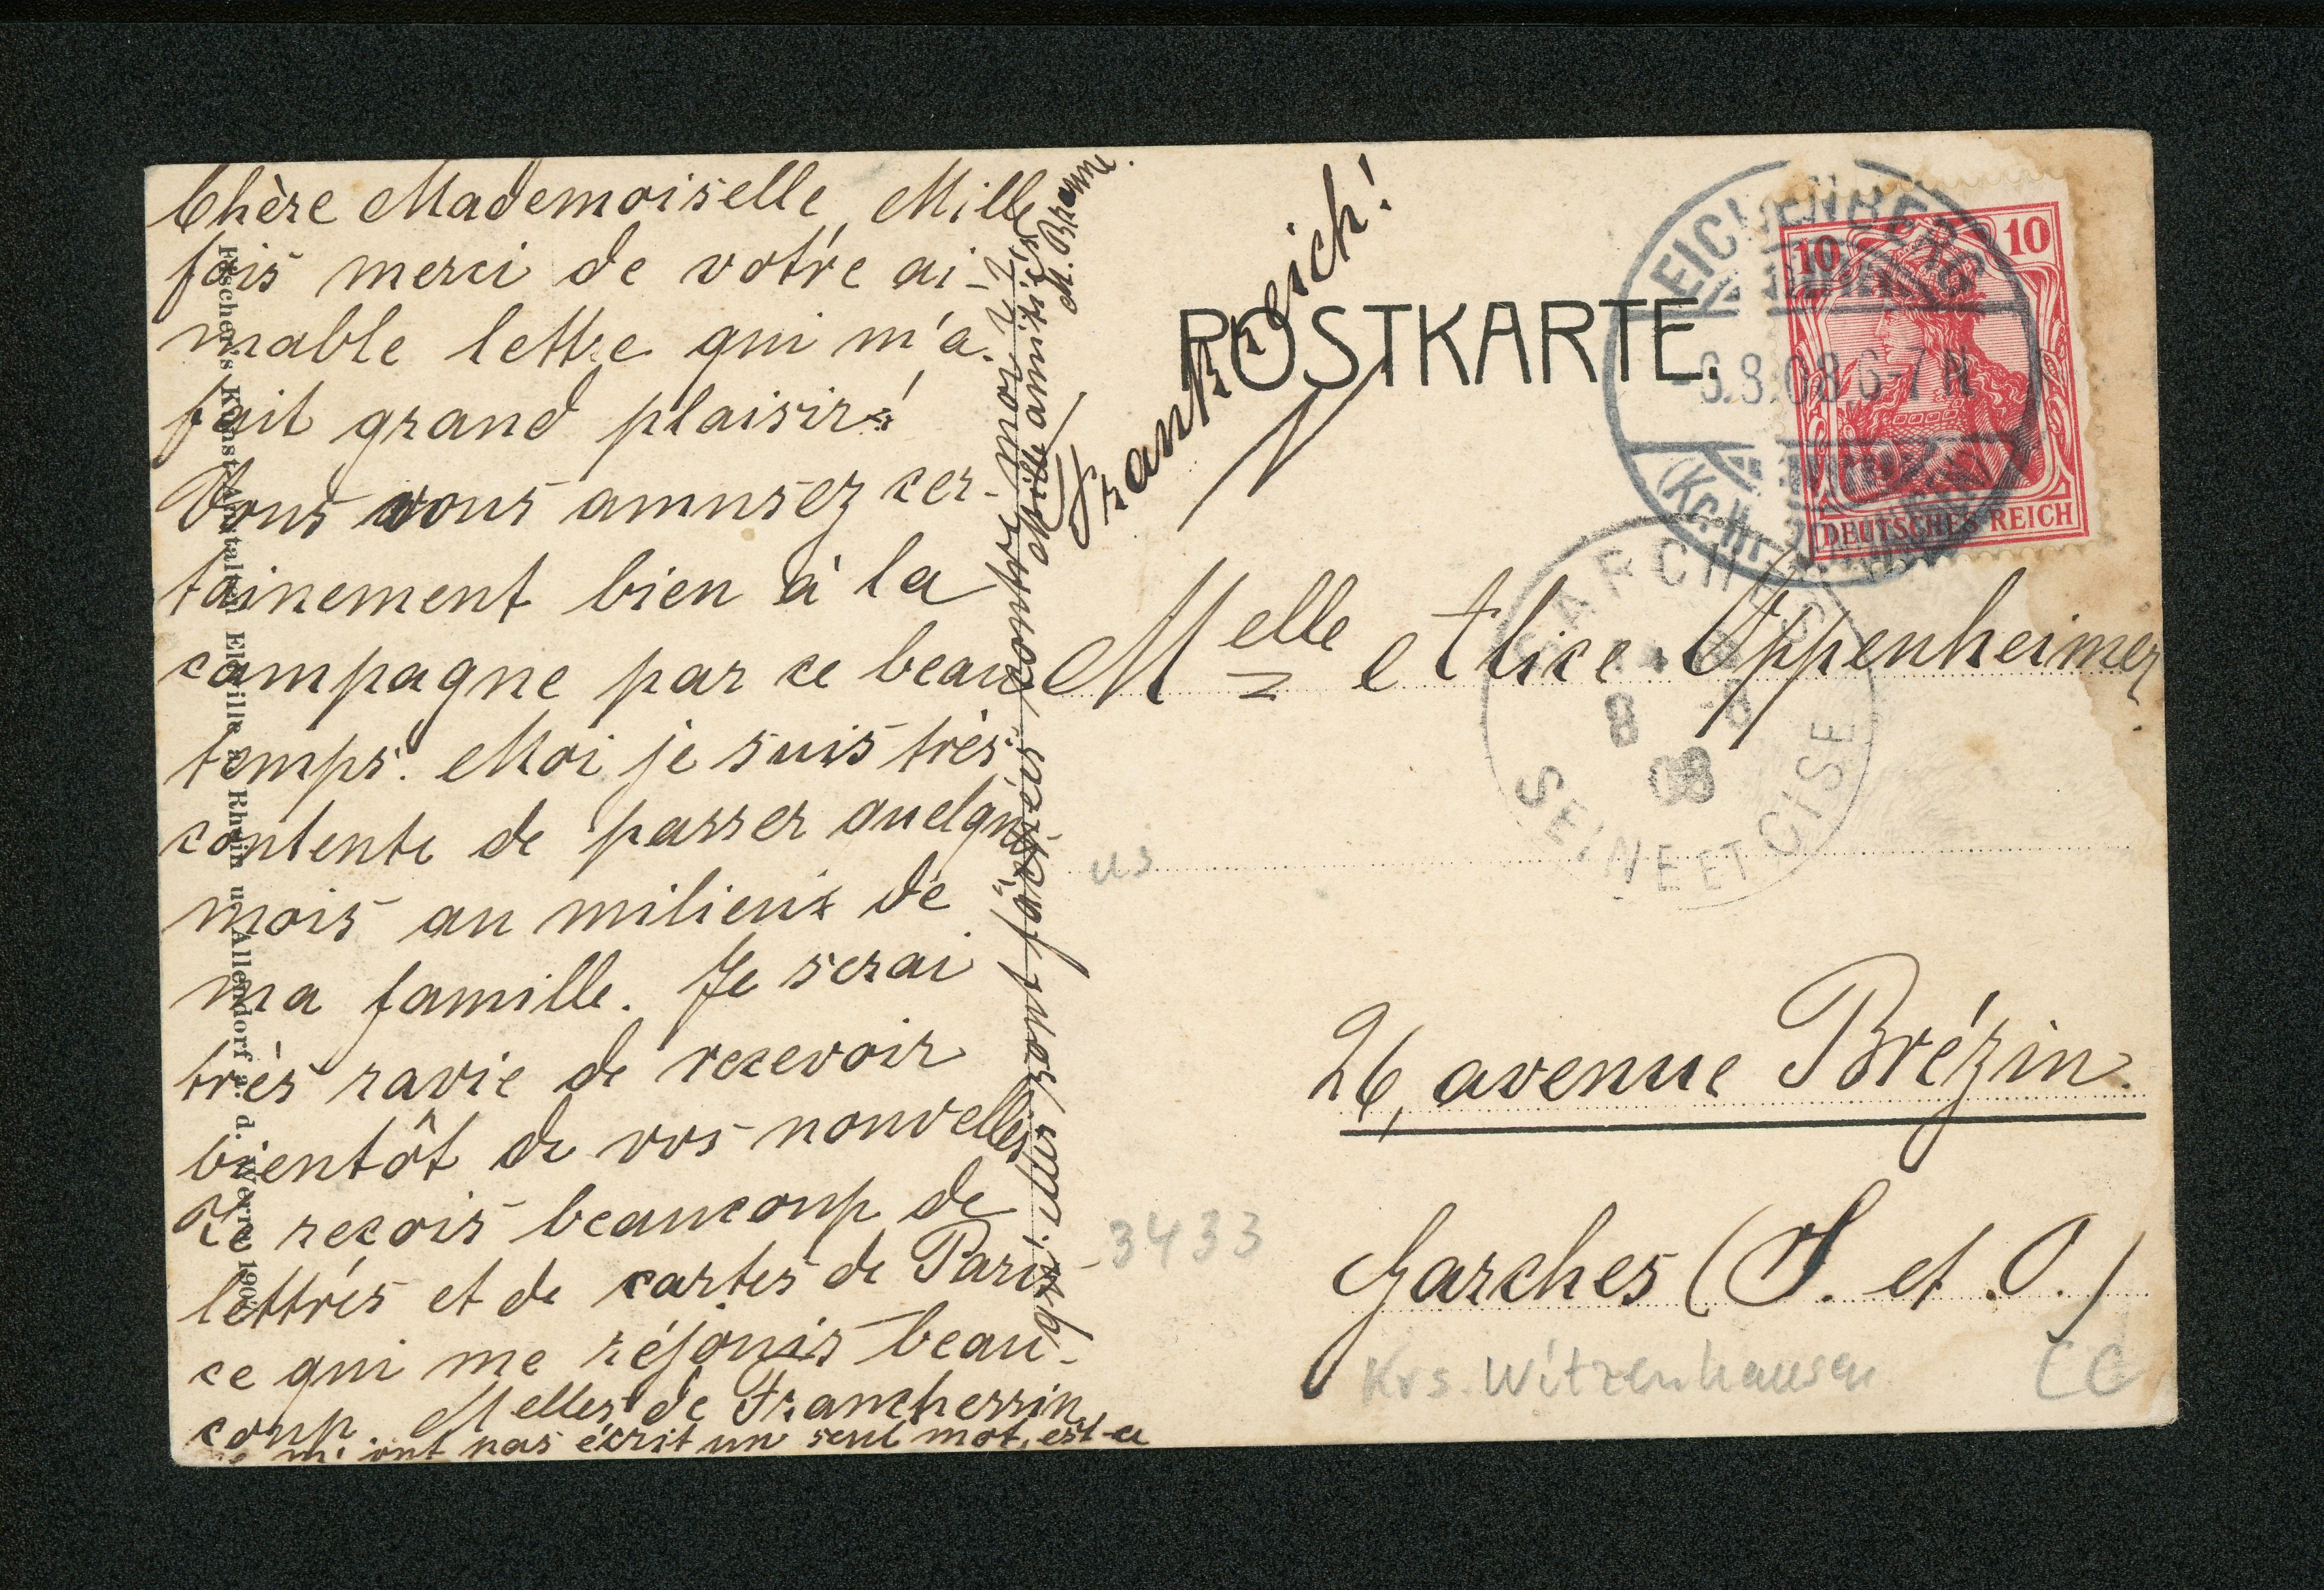 Chère Mademoiselle, Mille
fois merci de votre ai-
mable lettre qui m'a
fait grand plaisir!
Vous vous amusez cer-
tainement bien à la
campagne par ce beau
temps. Moi je suis très
contente de passer quelques
mois au milieux de
ma famille. Je serai
très ravie de recevoir
bientôt de vos nouvelles
Je reçois beaucoup de
lettres et de cartes de Paris
ce qui me réjouis beau-
coup. Melles de Francherrin
ne m'ont pas écrit un seul mot, est-ce
qu'elles sont fâchées contre moi??
Mille amitiés
M. Braune.
Fischer's Kunst-Anstalten Eltville a. Rhein u. Allendorf a. d. Werra 190
Frankreich!
POSTKARTE.
EICHENBERG
6.8.08.6-7N
10
10
DEUTSCHES REICH
GARCHES
8 -8
08
SEINE ET OISE
Melle Alice Oppenheimer
us
26, avenue Brézin.
3433
Garches (S. et O.)
Krs. Witzenhausen
CC